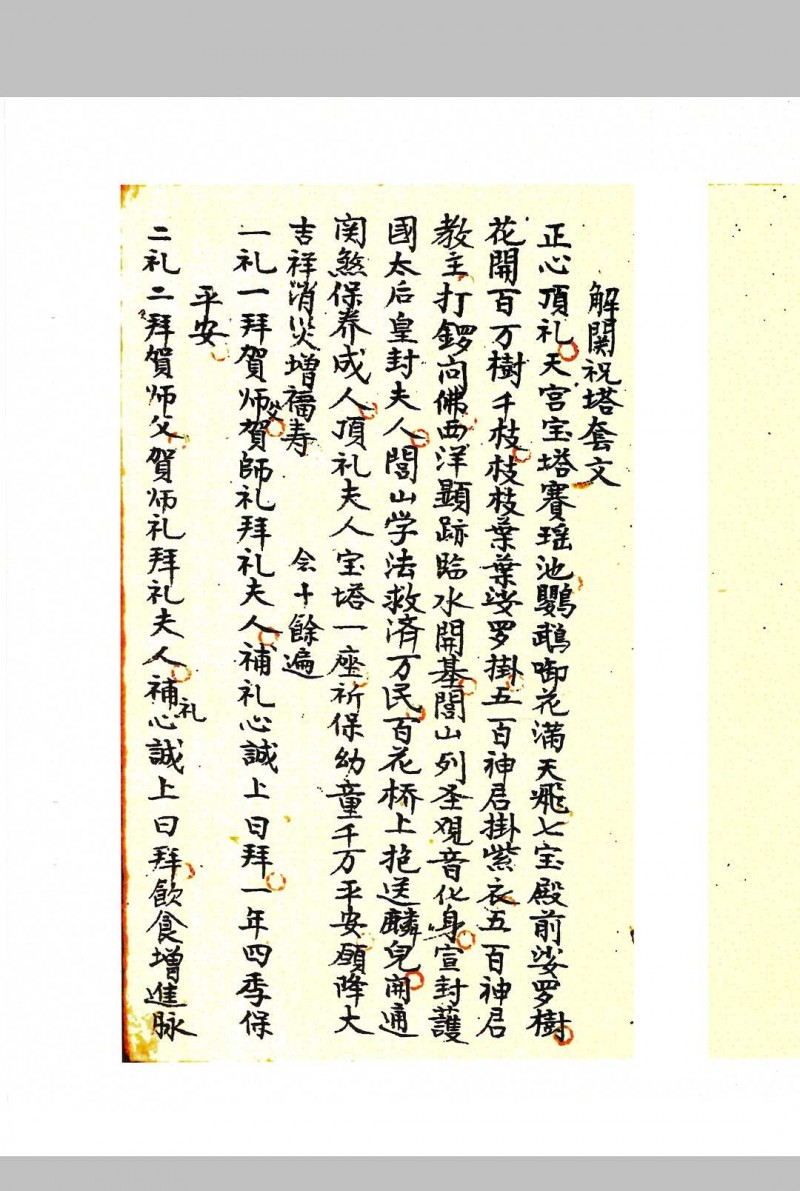 解関祝塔套文
正心頂礼天宫宝塔賽瑶池鸚鵡啣花滿天飛七宝殿前娑罗樹
花開百万樹千枝枝枝葉葉娑罗掛五百神君掛紫衣五百神君
教主打鑼向佛西洋顕跡臨水開基閭山列圣观音化身宣封護
國太后皇封夫人閭山学法救済万民百花桥上抱送麟兒開通
関煞保养成人頂礼夫人宝塔一座祈保幼童千万平安願降大
吉祥消災增福寿 念十餘遍
一礼一拜賀师父賀師礼拜礼夫人補礼心誠上曰拜一年四季保
平安
二礼二拜賀师父賀师礼拜礼夫人補礼心誠上曰拜飲食增進脉